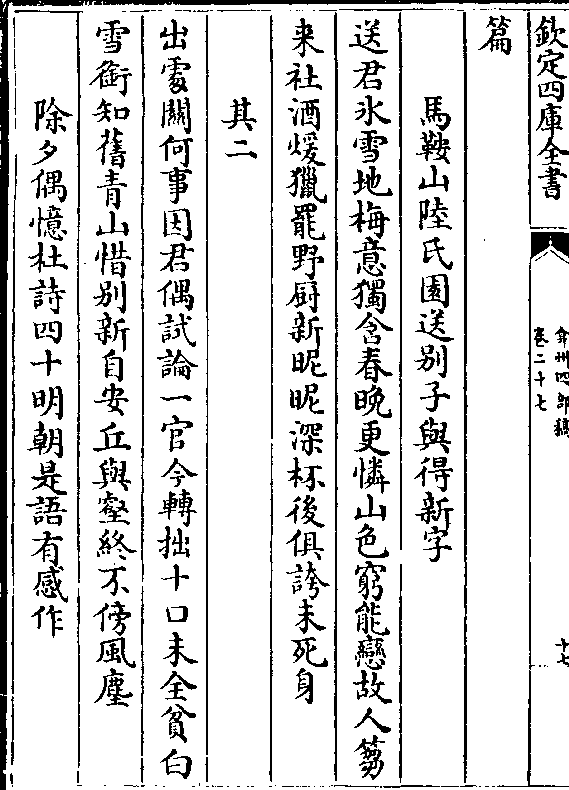 欽定四庫全書
弇州四部稿
卷二十七
十七
篇
馬鞍山陸氏園送別子與得新字
送君氷雪地梅意獨含春晚更憐山色窮能戀故人蒭
来社酒煖獵罷野厨新昵昵深杯後俱誇未死身
其二
出處關何事因君偶試論一官今轉拙十口未全貧白
雪銜知舊青山惜别新自安丘與壑終不傍風塵
除夕偶憶杜詩四十明朝是語有感作